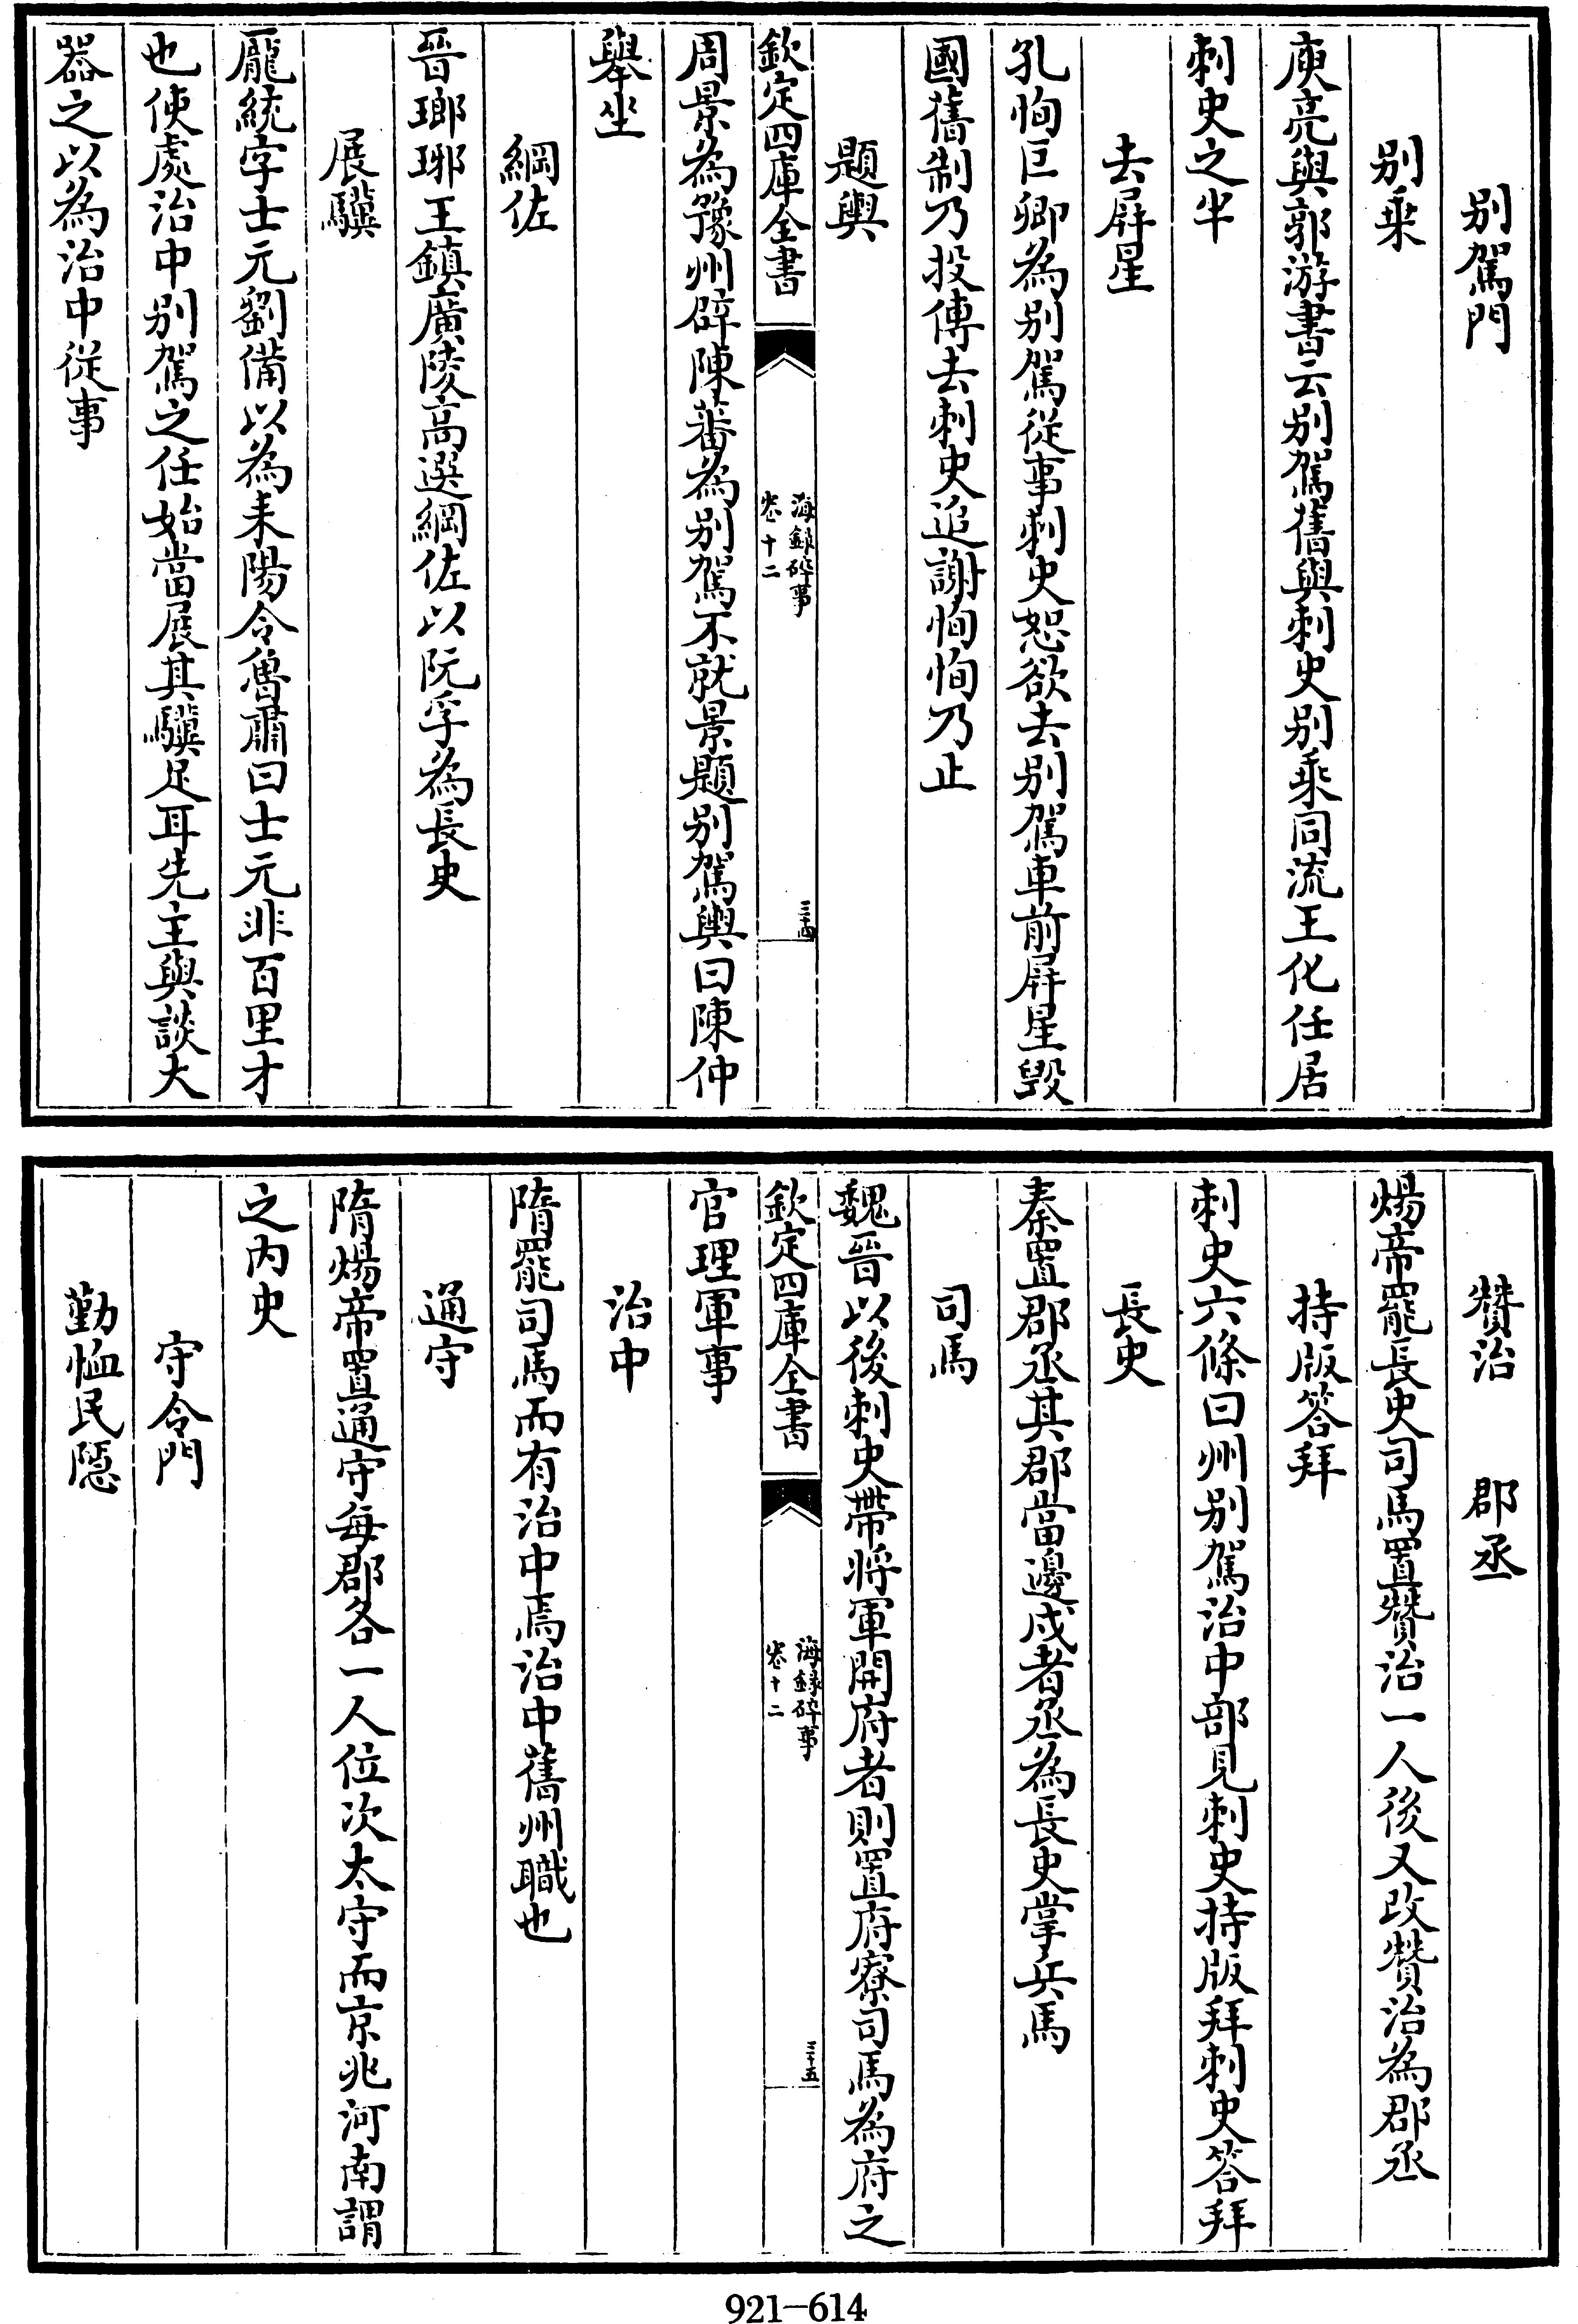 别駕門
别乘
庾亮與郭游書云别駕舊與刺史别乘同流王化任居
刺史之半
去屏星
孔恂巨卿為别駕從事刺史恕欲去别駕車前屏星毀
國舊制乃投傳去刺史追謝恂恂乃止
題輿
欽定四庫全書
海錄碎事
卷十二
三十四
周景為豫州辟陳蕃為别駕不就景題别駕輿曰陳仲
舉坐
綱佐
晉瑯琊王鎮廣陵高選綱佐以阮孚為長史
展驥
龎統字士元劉備以為耒陽令魯肅曰士元非百里才
也使處治中别駕之任始當展其驥足耳先主與談大
器之以為治中從事
贊治　郡丞
煬帝罷長史司馬置贊治一人後又改贊治為郡丞
持版答拜
刺史六條曰州别駕治中部見刺史持版拜刺史答拜
長史
秦置郡丞其郡當邊戍者丞為長史掌兵馬
司馬
魏晉以後刺史帶將軍開府者則置府寮司馬為府之
欽定四庫全書
海錄碎事
卷十二
三十五
官理軍事
治中
隋罷司馬而有治中焉治中舊州職也
通守
隋煬帝置通守每郡各一人位次太守而京兆河南謂
之内史
守令門
勤恤民隱
921-614